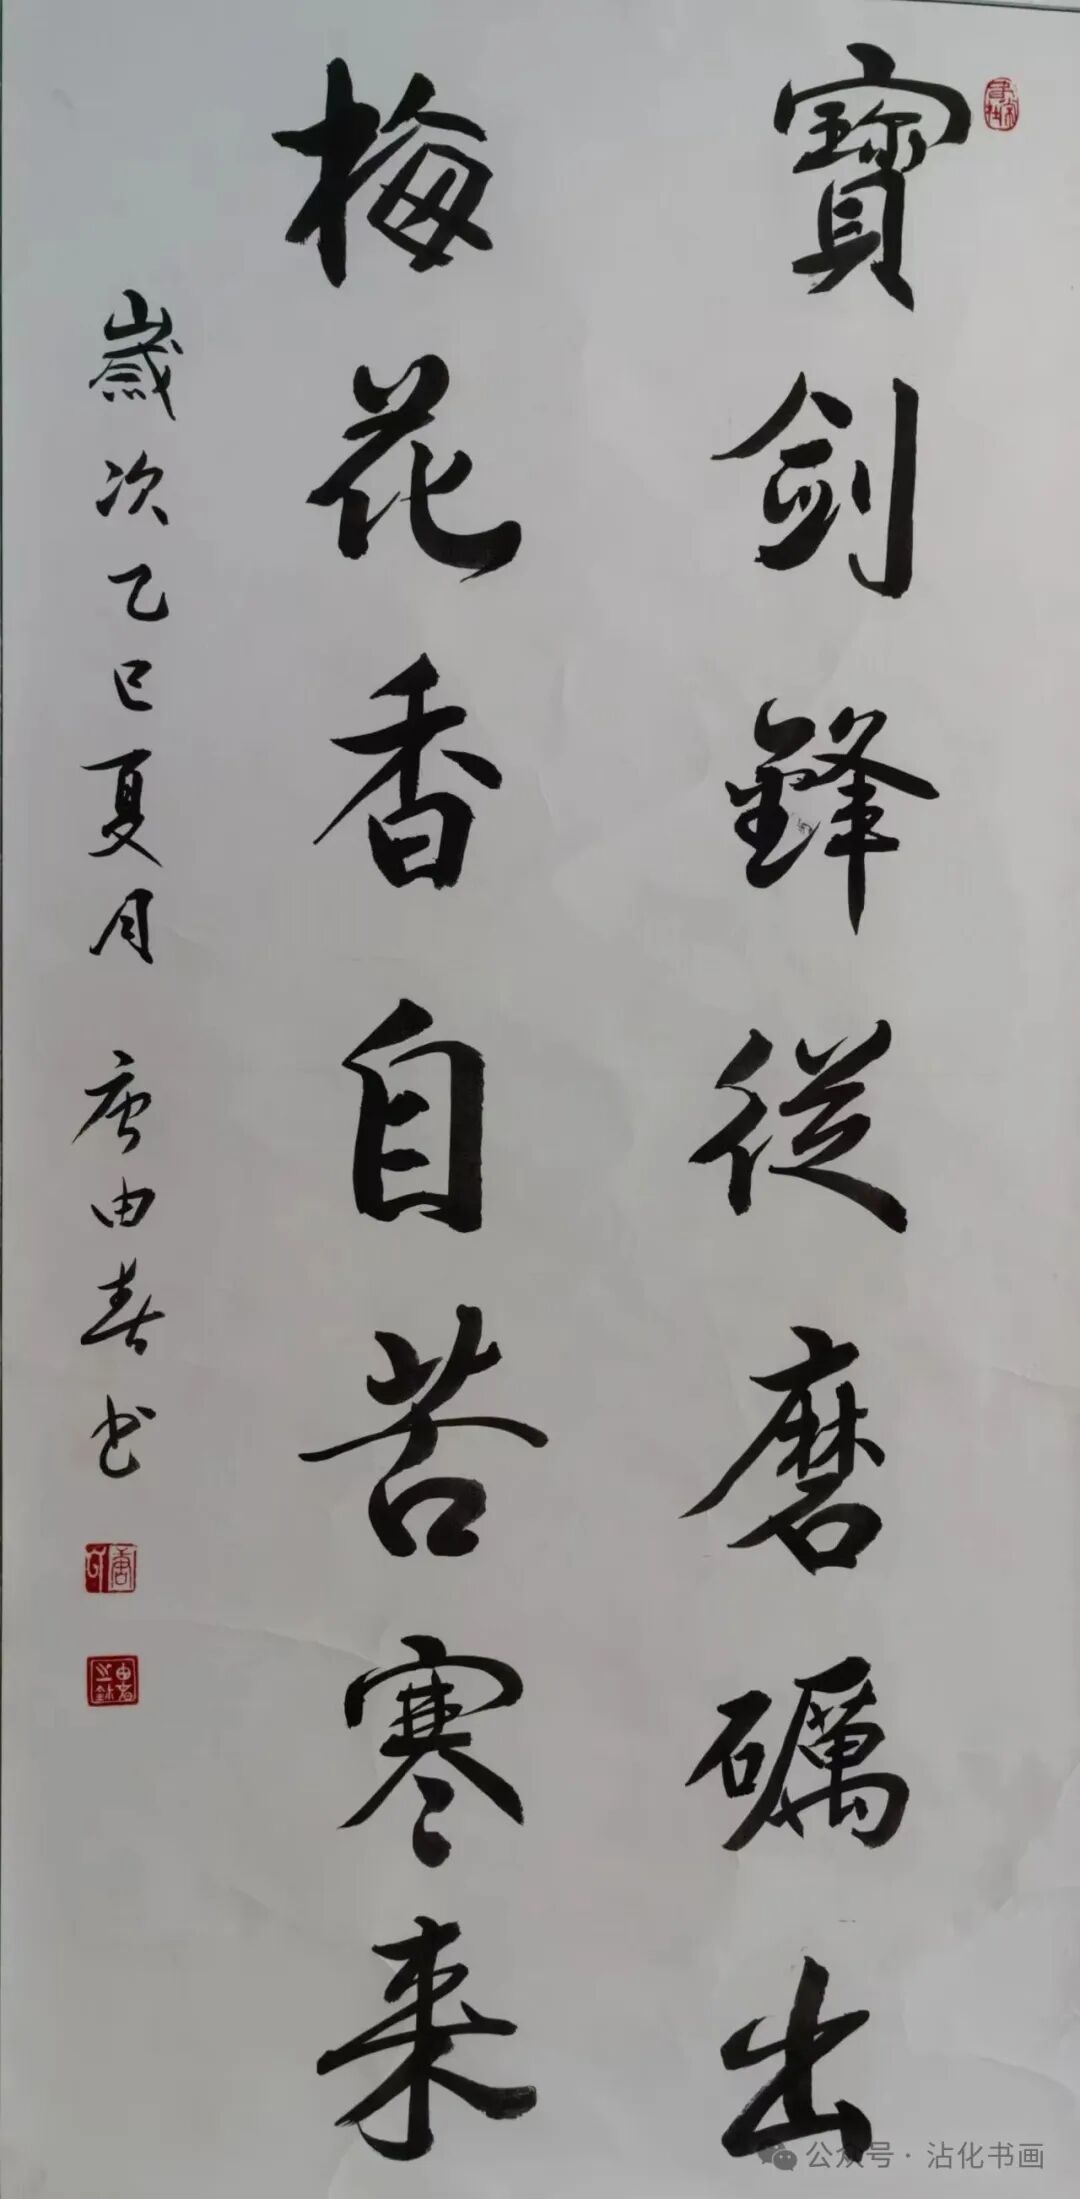 寶劍鋒從磨礪出
梅花香自苦寒来
歲次乙巳夏月 唐由春书
公众号·沾化书画